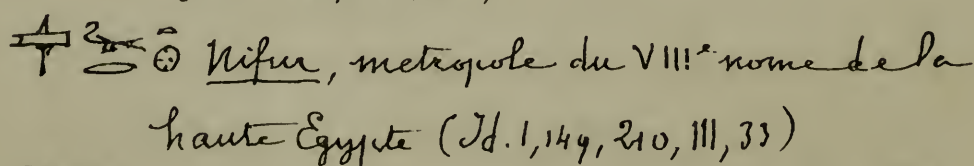 Nifur, metropole du VIIIᵉ nome de la
haute Egypte (Id. I, 149, 210, III, 33)